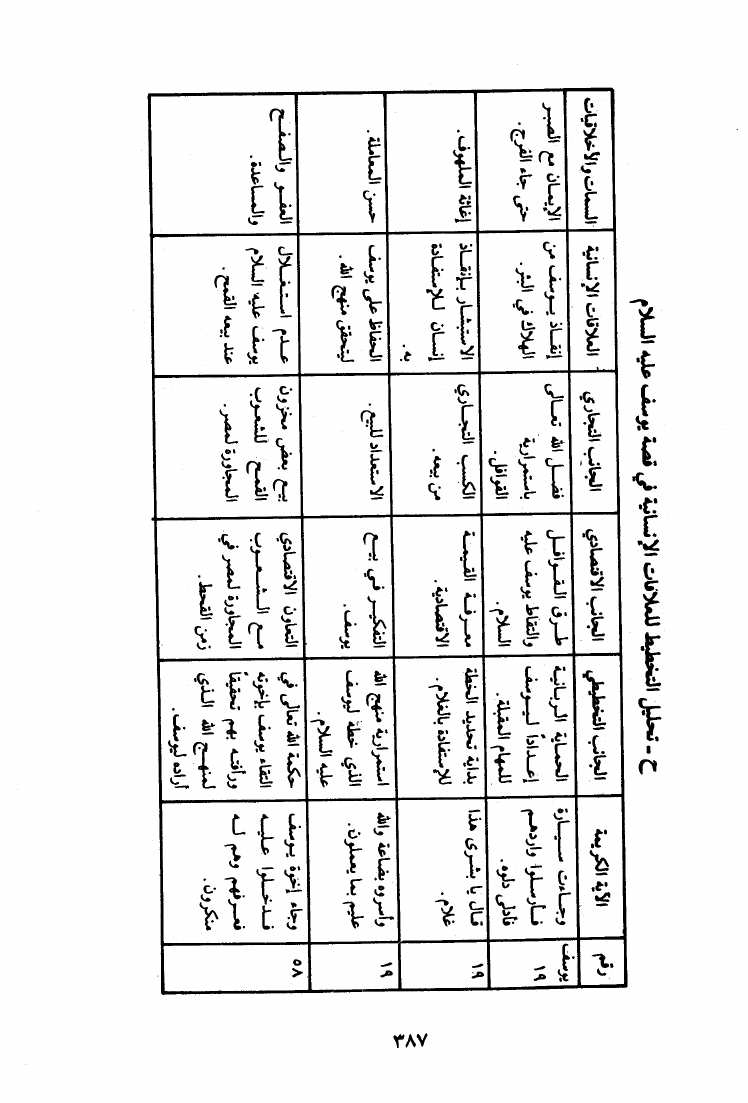 ح - تحليل التخطيط للعلاقات الإنسانية في قصة يوسف عليه السلام
رقم
الآية الكريمة
الجانب التخطيطي
الجانب الاقتصادي
الجانب التجاري
العلاقات الإنسانية
السمات والأخلاقيات
يوسف
١٩
وجاءت سيارة
فأرسلوا واردهم
فأدلى دلوه.
الحماية الربانية
إعداداً ليوسف
للمهام المقبلة.
طرق القوافل
والتقاط يوسف عليه
السلام.
فضل الله تعالى
باستمرارية
القوافل.
إنقاذ يوسف من
الهلاك في البئر.
الإيمان مع الصبر
حتى جاء الفرج.
١٩
قال يا بشرى هذا
غلام.
بداية تحديد الخطة
للإستفادة بالغلام.
معرفة القيمة
الاقتصادية.
الكسب التجاري
من بيعه.
الاستبشار بإنقاذ
إنسان للإستفادة
به.
إغاثة الملهوف.
١٩
وأسروه بضاعة والله
عليم بما يعملون.
استمرارية منهج الله
الذي خطة ليوسف
عليه السلام.
التفكير في بيع
يوسف.
الاستعداد للبيع.
الحفاظ على يوسف
ليتحقق منهج الله.
حسن المعاملة.
٥٨
وجاء إخوة يوسف
فدخلوا عليه
فعرفهم وهم له
منكرون.
حكمة الله تعالى في
التقاء يوسف بإخوته
ورأفته بهم تحقيقاً
لمنهج الله الذي
أراده ليوسف.
التعاون الاقتصادي
مع الشعوب
المجاورة لمصر في
زمن القحط.
بيع بعض مخزون
القمح للشعوب
المجاورة لمصر.
عدم استغلال
يوسف عليه السلام
عند بيعه القمح.
العفو والصفح
والمساعدة.
٣٨٧